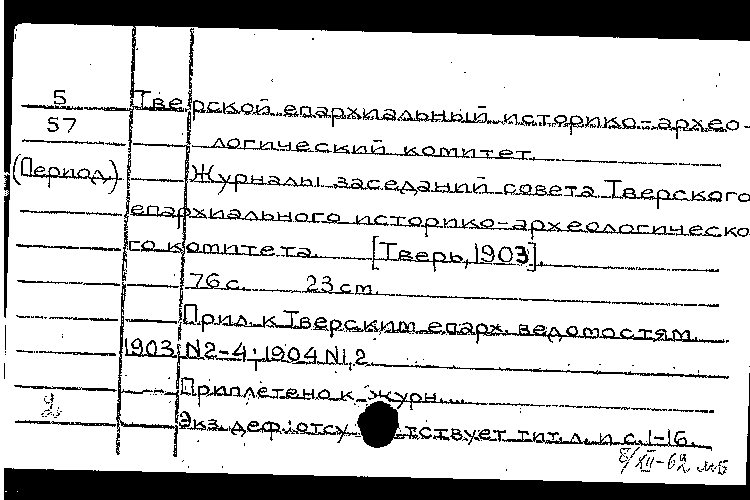 5 Тверской епархиальный историко-архео-
57 логический комитет.
(Период.) Журналы заседаний совета Тверского
епархиального историко-археологическо
го комитета. [Тверь, 1903].
76 с. 23 cm.
Прил. к Тверским епарх. ведомостям
1903 N2-4; 1904 N1,2
Приплетено к журн....
2 Экз. деф.: отсу тствует тит. л. и с. 1-16.
8/XII-62 мб